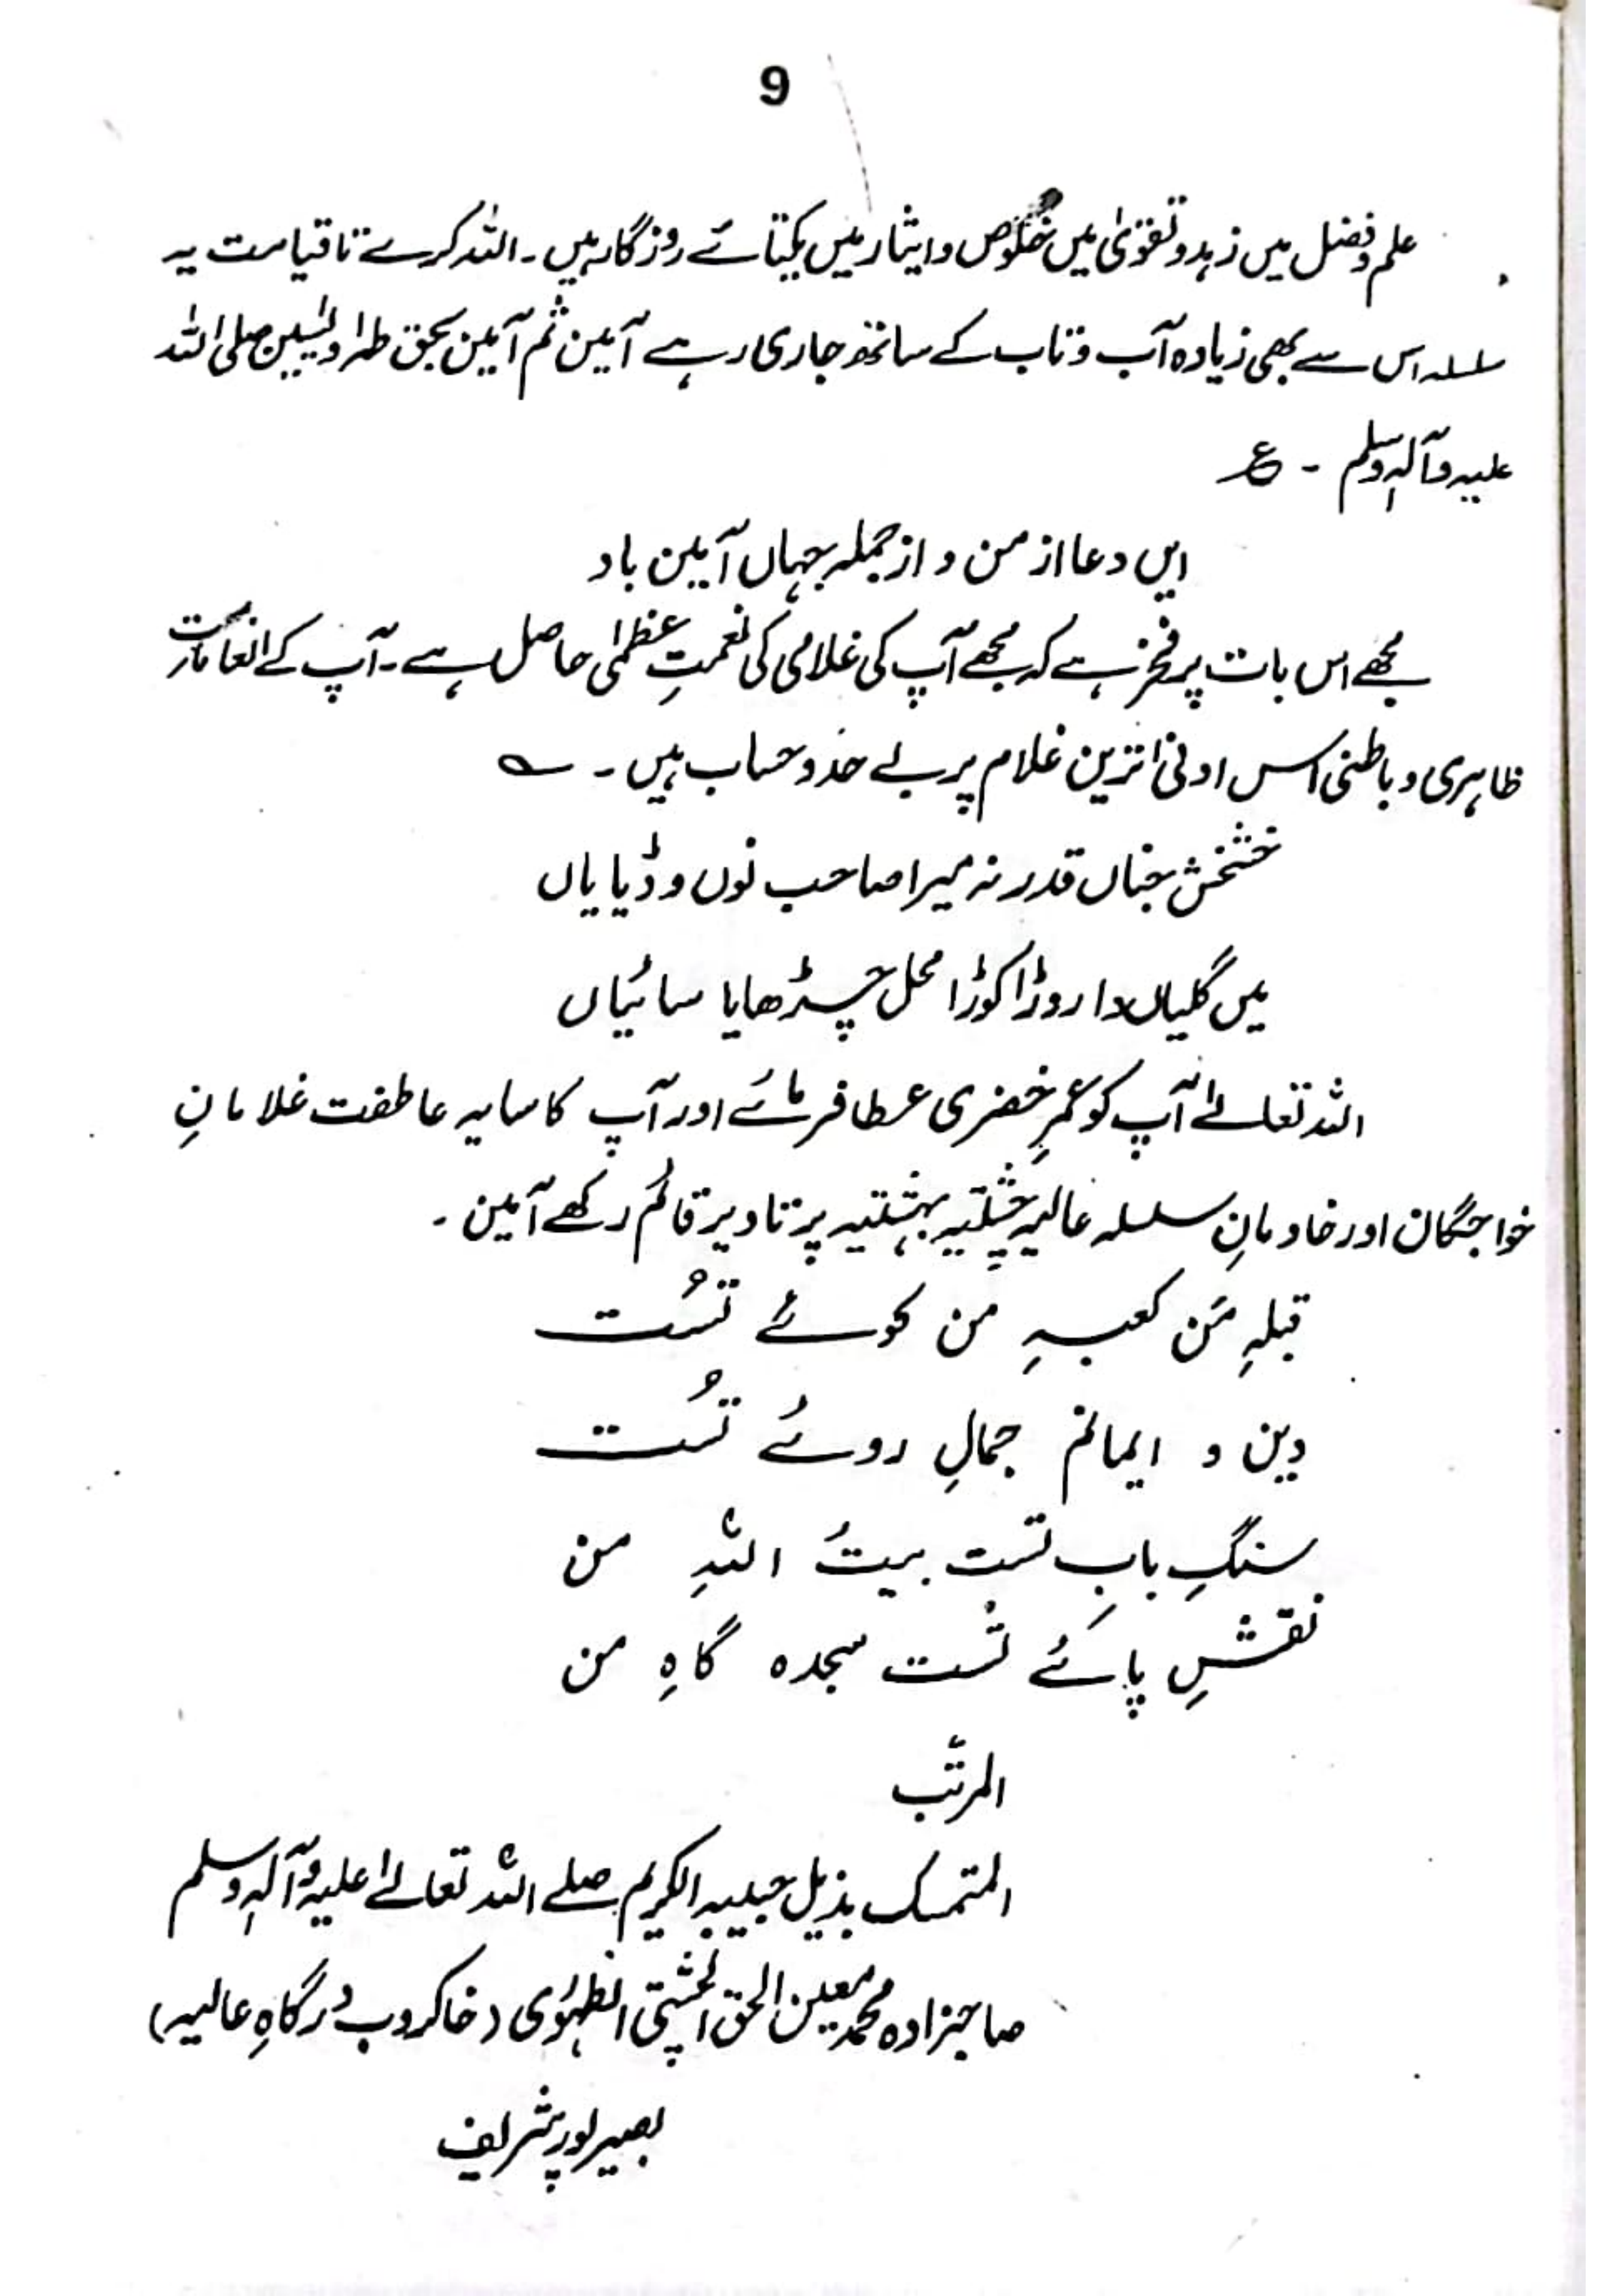 9
علم و فضل میں زہد و تقویٰ میں خلوص و ایثار میں یکتائے روزگار ہیں۔ اللہ کرے تا قیامت یہ
سلسلہ اس سے بھی زیادہ آب و تاب کے ساتھ جاری رہے آمین ثم آمین بحق طٰہٰ و یٰسین صلی اللہ
علیہ وآلہٖ وسلم ۔ ع
ایں دعا از من و از جملہ جہاں آمین باد
مجھے اس بات پر فخر ہے کہ مجھے آپ کی غلامی کی نعمتِ عظمٰی حاصل ہے ۔ آپ کے انعامات
ظاہری و باطنی اس ادنیٰ ترین غلام پر بے حد و حساب ہیں ۔ ؎
خشخش جناں قدر نہ میرا صاحب نوں وڈیایاں
میں گلیاں دا روڑا کوڑا محل چڑھایا سائیاں
اللہ تعالےٰ آپ کو عمرِ خضری عطا فرمائے اور آپ کا سایہ عاطفت غلامانِ
خواجگان اور خادمانِ سلسلہ عالیہ چشتیہ بہشتیہ پر تا دیر قائم رکھے آمین ۔
قبلہِ مَن کعبہِ من کوئے تُست
دین و ایمانم جمالِ روئے تُست
سنگِ بابِ تست بیتُ اللہِ من
نقشِ پائے تُست سجدہ گاہِ من
المرتّب
المتمسک بذیل حبیبہ الکریم صلے اللہ تعالےٰ علیہ وآلہٖ وسلم
صاحبزادہ محمد معین الحق الچشتی (خاکروب درگاہِ عالیہ)
بصیر پور شریف